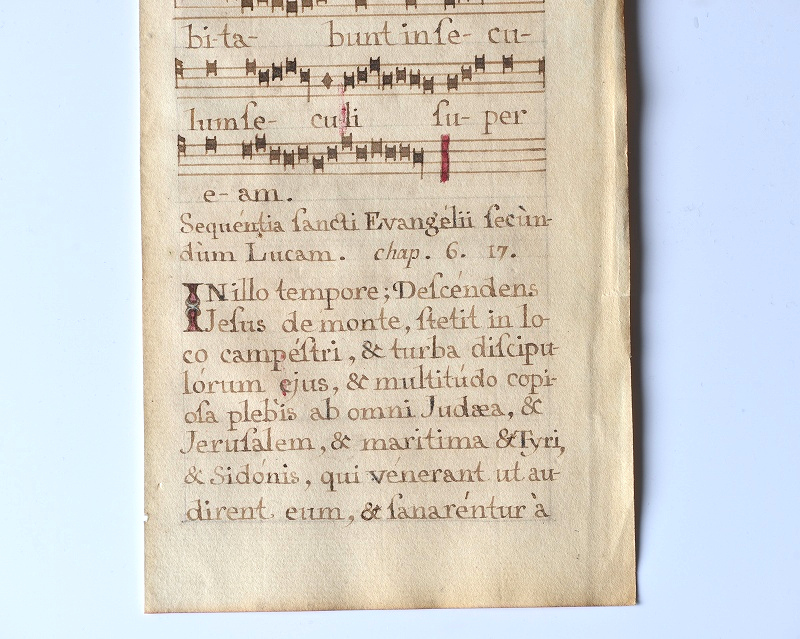 bi-ta- bunt in ſe- cu-
lum ſe- culi ſu- per
e- am.
Sequéntia ſancti Evangélii ſecùn-
dùm Lucam. chap. 6. 17.
IN illo tempore; Deſcéndens
Jeſus de monte, ſtetit in lo-
co campéſtri, & turba diſcipu-
lórum ejus, & multitúdo copi-
oſa plebis ab omni Judæa, &
Jeruſalem, & maritima & Tyri,
& Sidónis, qui vénerant ut au-
dirent eum, & ſanaréntur à